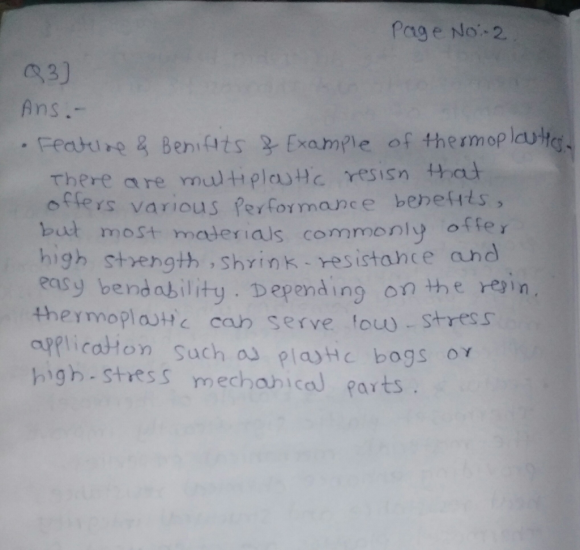 Page No:-2.
Q3]
Ans.-
• Feature & Benifits & Example of thermoplastics.
There are multiplastic resisn that
offers various Performance benefits,
but most materials commonly offer
high strength, shrink-resistance and
easy bendability. Depending on the resin,
thermoplastic can serve low-stress
application such as plastic bags or
high-stress mechanical parts.